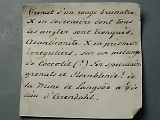 Grenat d'un rouge brunatre
X en dodécaèdre dont tous
les angles sont tronqués,
Acanticonite X en prismes
irreguliers, sur un mélange
de Coccolite (?) de specular
grenats et Hornblende? de
la Mine de Langsöe a
lieu d'Arendahl.